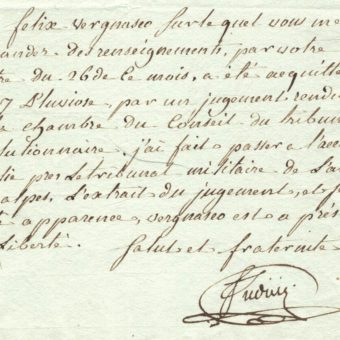 felix vergnasco sur lequel vous me
mandez des renseignement, par votre
tre du 26 de ce mois, a été acquitté
7 Pluviose par un jugement rendu
a chambre du Conseil du tribun
lutionnaire. j'ai fait passer a l'acc
lic pres le tribunal militaire de L'a
alpes, L'extrait du jugement, et s
apparence, vergnasco est a prés
Liberté. Salut et fraternité